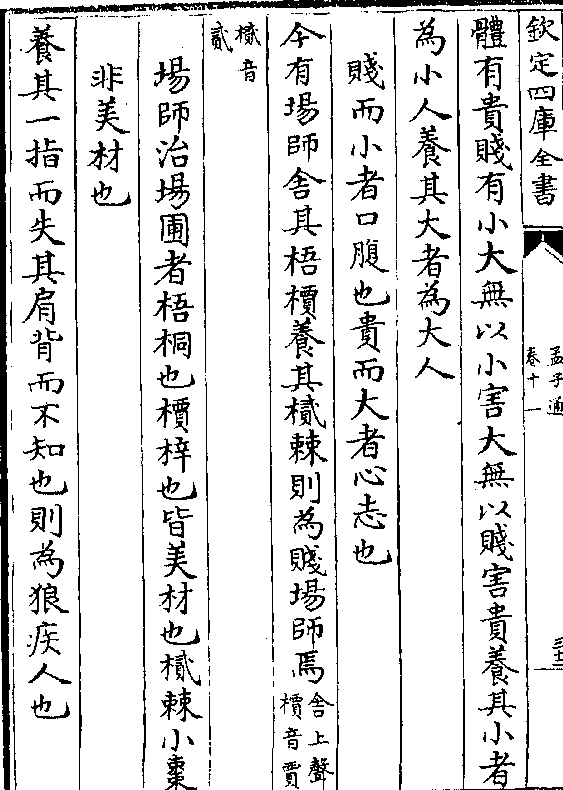 欽定四庫全書
孟子通
卷十一
體有貴賤有小大無以小害大無以賤害貴養其小者
為小人養其大者為大人
賤而小者口腹也貴而大者心志也
今有場師舍其梧檟養其樲棘則為賤場師焉
舍上聲
檟音賈
樲音
貳
場師治場圃者梧桐也檟梓也皆美材也樲棘小棗
非美材也
養其一指而失其肩背而不知也則為狼疾人也